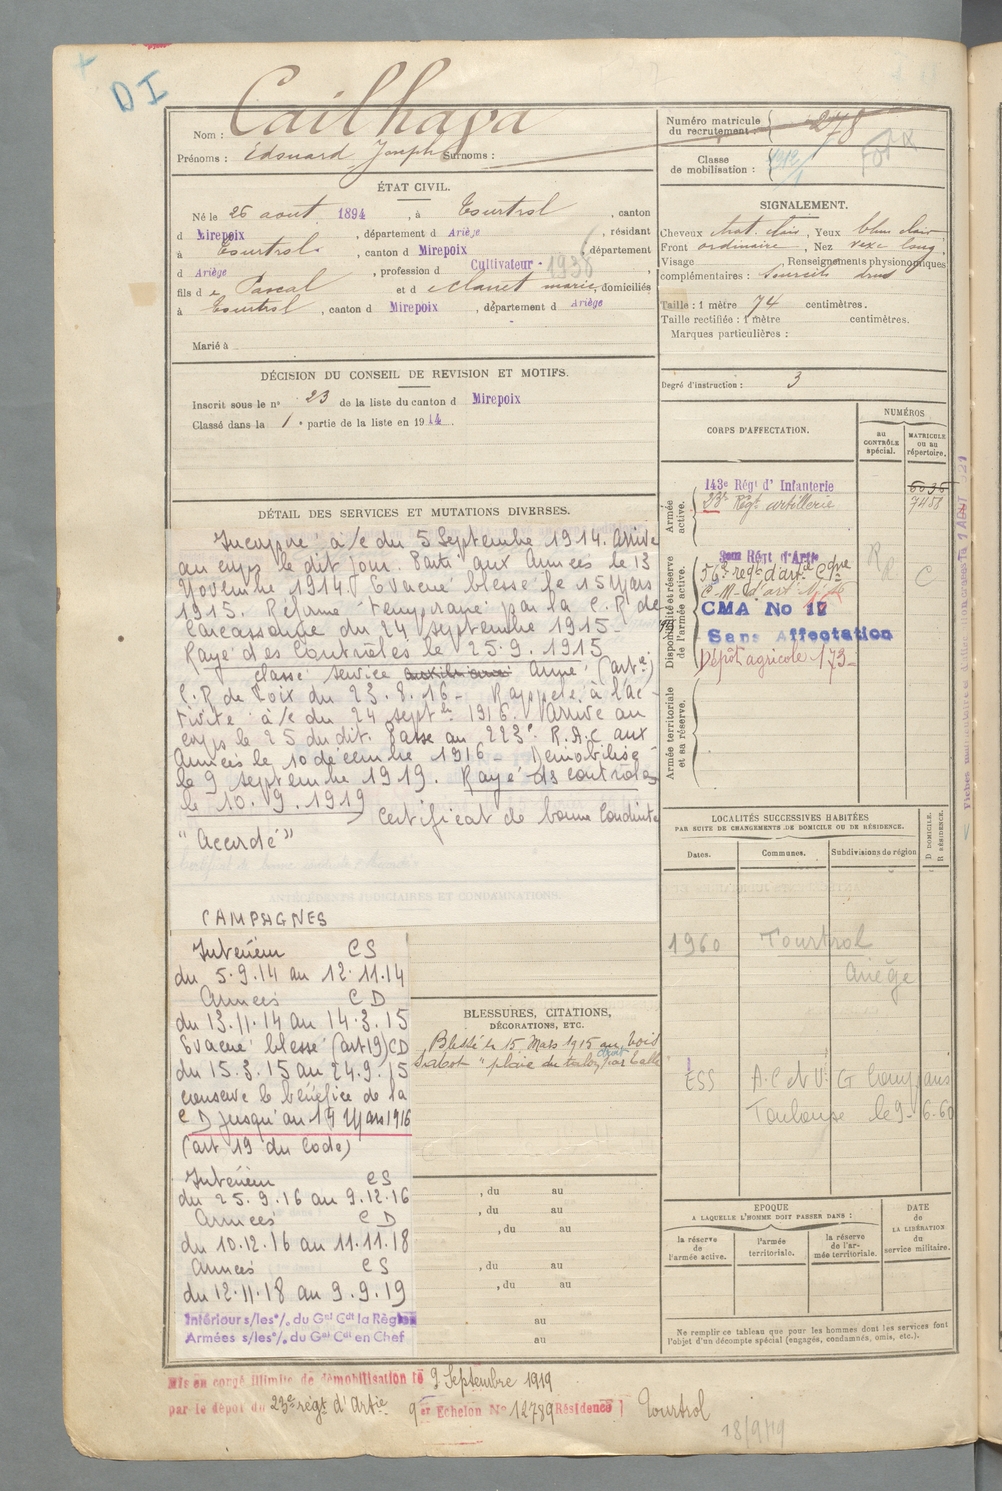 DI
Nom : Cailhava
Prénoms : Edouard Joseph Surnoms :
Numéro matricule du recrutement : 278
Classe de mobilisation :
ÉTAT CIVIL.
Né le 26 aout 1894, à Tourtrol, canton
d Mirepoix, département d Ariège, résidant
à Tourtrol, canton d Mirepoix, département
d Ariège, profession d Cultivateur - 1938
fils de Pascal et de Clanet marie, domiciliés
à Tourtrol, canton d Mirepoix, département d Ariège
Marié à
SIGNALEMENT.
Cheveux chat. clair, Yeux bleu clair
Front ordinaire, Nez vexe long
Visage Renseignements physionomiques
complémentaires : Sourcils drus
Taille : 1 mètre 74 centimètres.
Taille rectifiée : 1 mètre centimètres.
Marques particulières :
Degré d'instruction : 3
DÉCISION DU CONSEIL DE REVISION ET MOTIFS.
Inscrit sous le n° 23 de la liste du canton d Mirepoix
Classé dans la 1e partie de la liste en 1914.
DÉTAIL DES SERVICES ET MUTATIONS DIVERSES.
Incorporé à/c du 5 Septembre 1914. Arrivé
au corps le dit jour. Parti aux Armées le 13
Novembre 1914. Evacué blessé le 15 Mars
1915. Réformé temporaire par la C.R de
Carcassonne du 24 septembre 1915-
Rayé des Contrôles le 25.9.1915
Classé service auxiliaire Armé (art)
C.R de Foix du 23.8.16- Rappelé à l'ac-
tivité à/c du 24 septbre 1916. Arrivé au
corps le 25 du dit. Passe au 223e R.A.C aux
Armées le 10 décembre 1916- Démobilisé
le 9 septembre 1919. Rayé des contrôles
le 10.9.1919
Certificat de bonne Conduite
"Accordé"
ANTÉCÉDENTS JUDICIAIRES ET CONDAMNATIONS.
CAMPAGNES
Intérieur CS
du 5.9.14 au 12.11.14
Armées CD
du 13.11.14 au 14.3.15
Evacué blessé (art 19) CD
du 15.3.15 au 24.9.15
conserve le bénéfice de la
CD jusqu'au 14 Mars 1916
(art 19 du Code)
Intérieur CS
du 25.9.16 au 9.12.16
Armées CD
du 10.12.16 au 11.11.18
Armées CS
du 12.11.18 au 9.9.19
Intérieur s/les °/. du Gal Cdt la Région
Armées s/les °/. du Gal Cdt en Chef
BLESSURES, CITATIONS,
DÉCORATIONS, ETC.
Blessé le 15 Mars 1915 au bois
Sabot "plaie du talon droit par balle
, du au
, du au
, du au
, du au
, du au
au
au
CORPS D'AFFECTATION.
NUMÉROS
au CONTRÔLE spécial.
MATRICULE ou au répertoire.
Armée active.
143e Régt d'Infanterie
6036
23e Régt artillerie
7458
Disponibilité et réserve de l'armée active.
Régt d'Artie
56e regt d'art. Cgne
CMA No 17
Sans Affectation
Dépôt agricole 173-
RR
C
Armée territoriale et sa réserve.
LOCALITÉS SUCCESSIVES HABITÉES
PAR SUITE DE CHANGEMENTS DE DOMICILE OU DE RÉSIDENCE.
D DOMICILE.
R RÉSIDENCE.
Dates. Communes. Subdivisions de région
1960 Tourtrol
Ariège
ESS A.C et V. G
Toulouse le 9-6-60
EPOQUE
A LAQUELLE L'HOMME DOIT PASSER DANS :
la réserve de l'armée active.
l'armée territoriale.
la réserve de l'armée territoriale.
DATE de LA LIBÉRATION du service militaire.
Ne remplir ce tableau que pour les hommes dont les services font
l'objet d'un décompte spécial (engagés, condamnés, omis, etc.).
Mis en congé illimité de démobilisation le 9 Septembre 1919
par le dépôt du 23e régt d'Artie 9e Echelon No 12789 Résidence Tourtrol
18/9/19